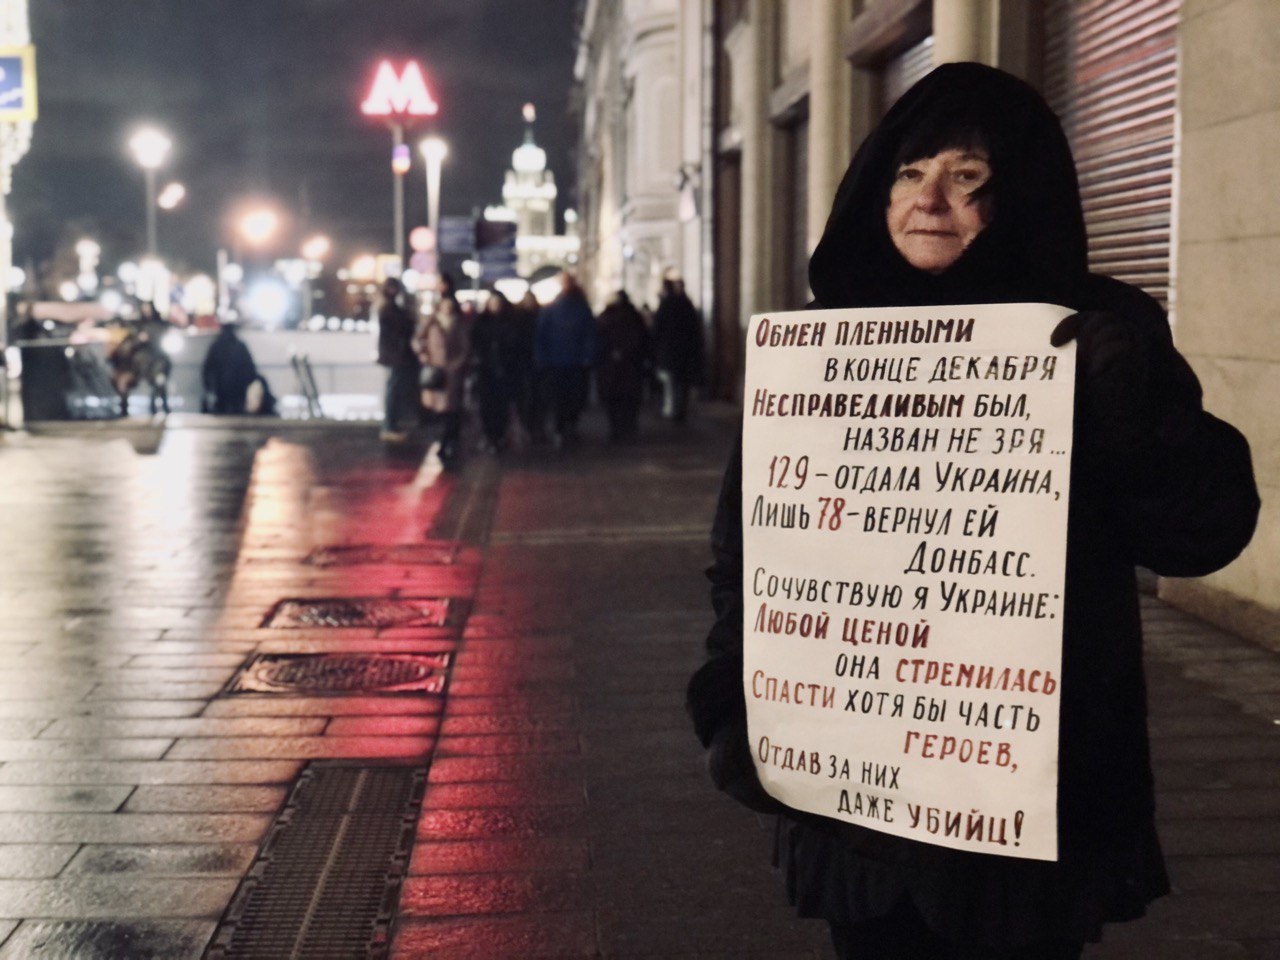 М
Обмен пленными
в конце декабря
Несправедливым был,
назван не зря...
129 – отдала Украина,
Лишь 78 – вернул ей
Донбасс.
Сочувствую я Украине:
Любой ценой
она стремилась
Спасти хотя бы часть
героев,
Отдав за них
даже убийц!